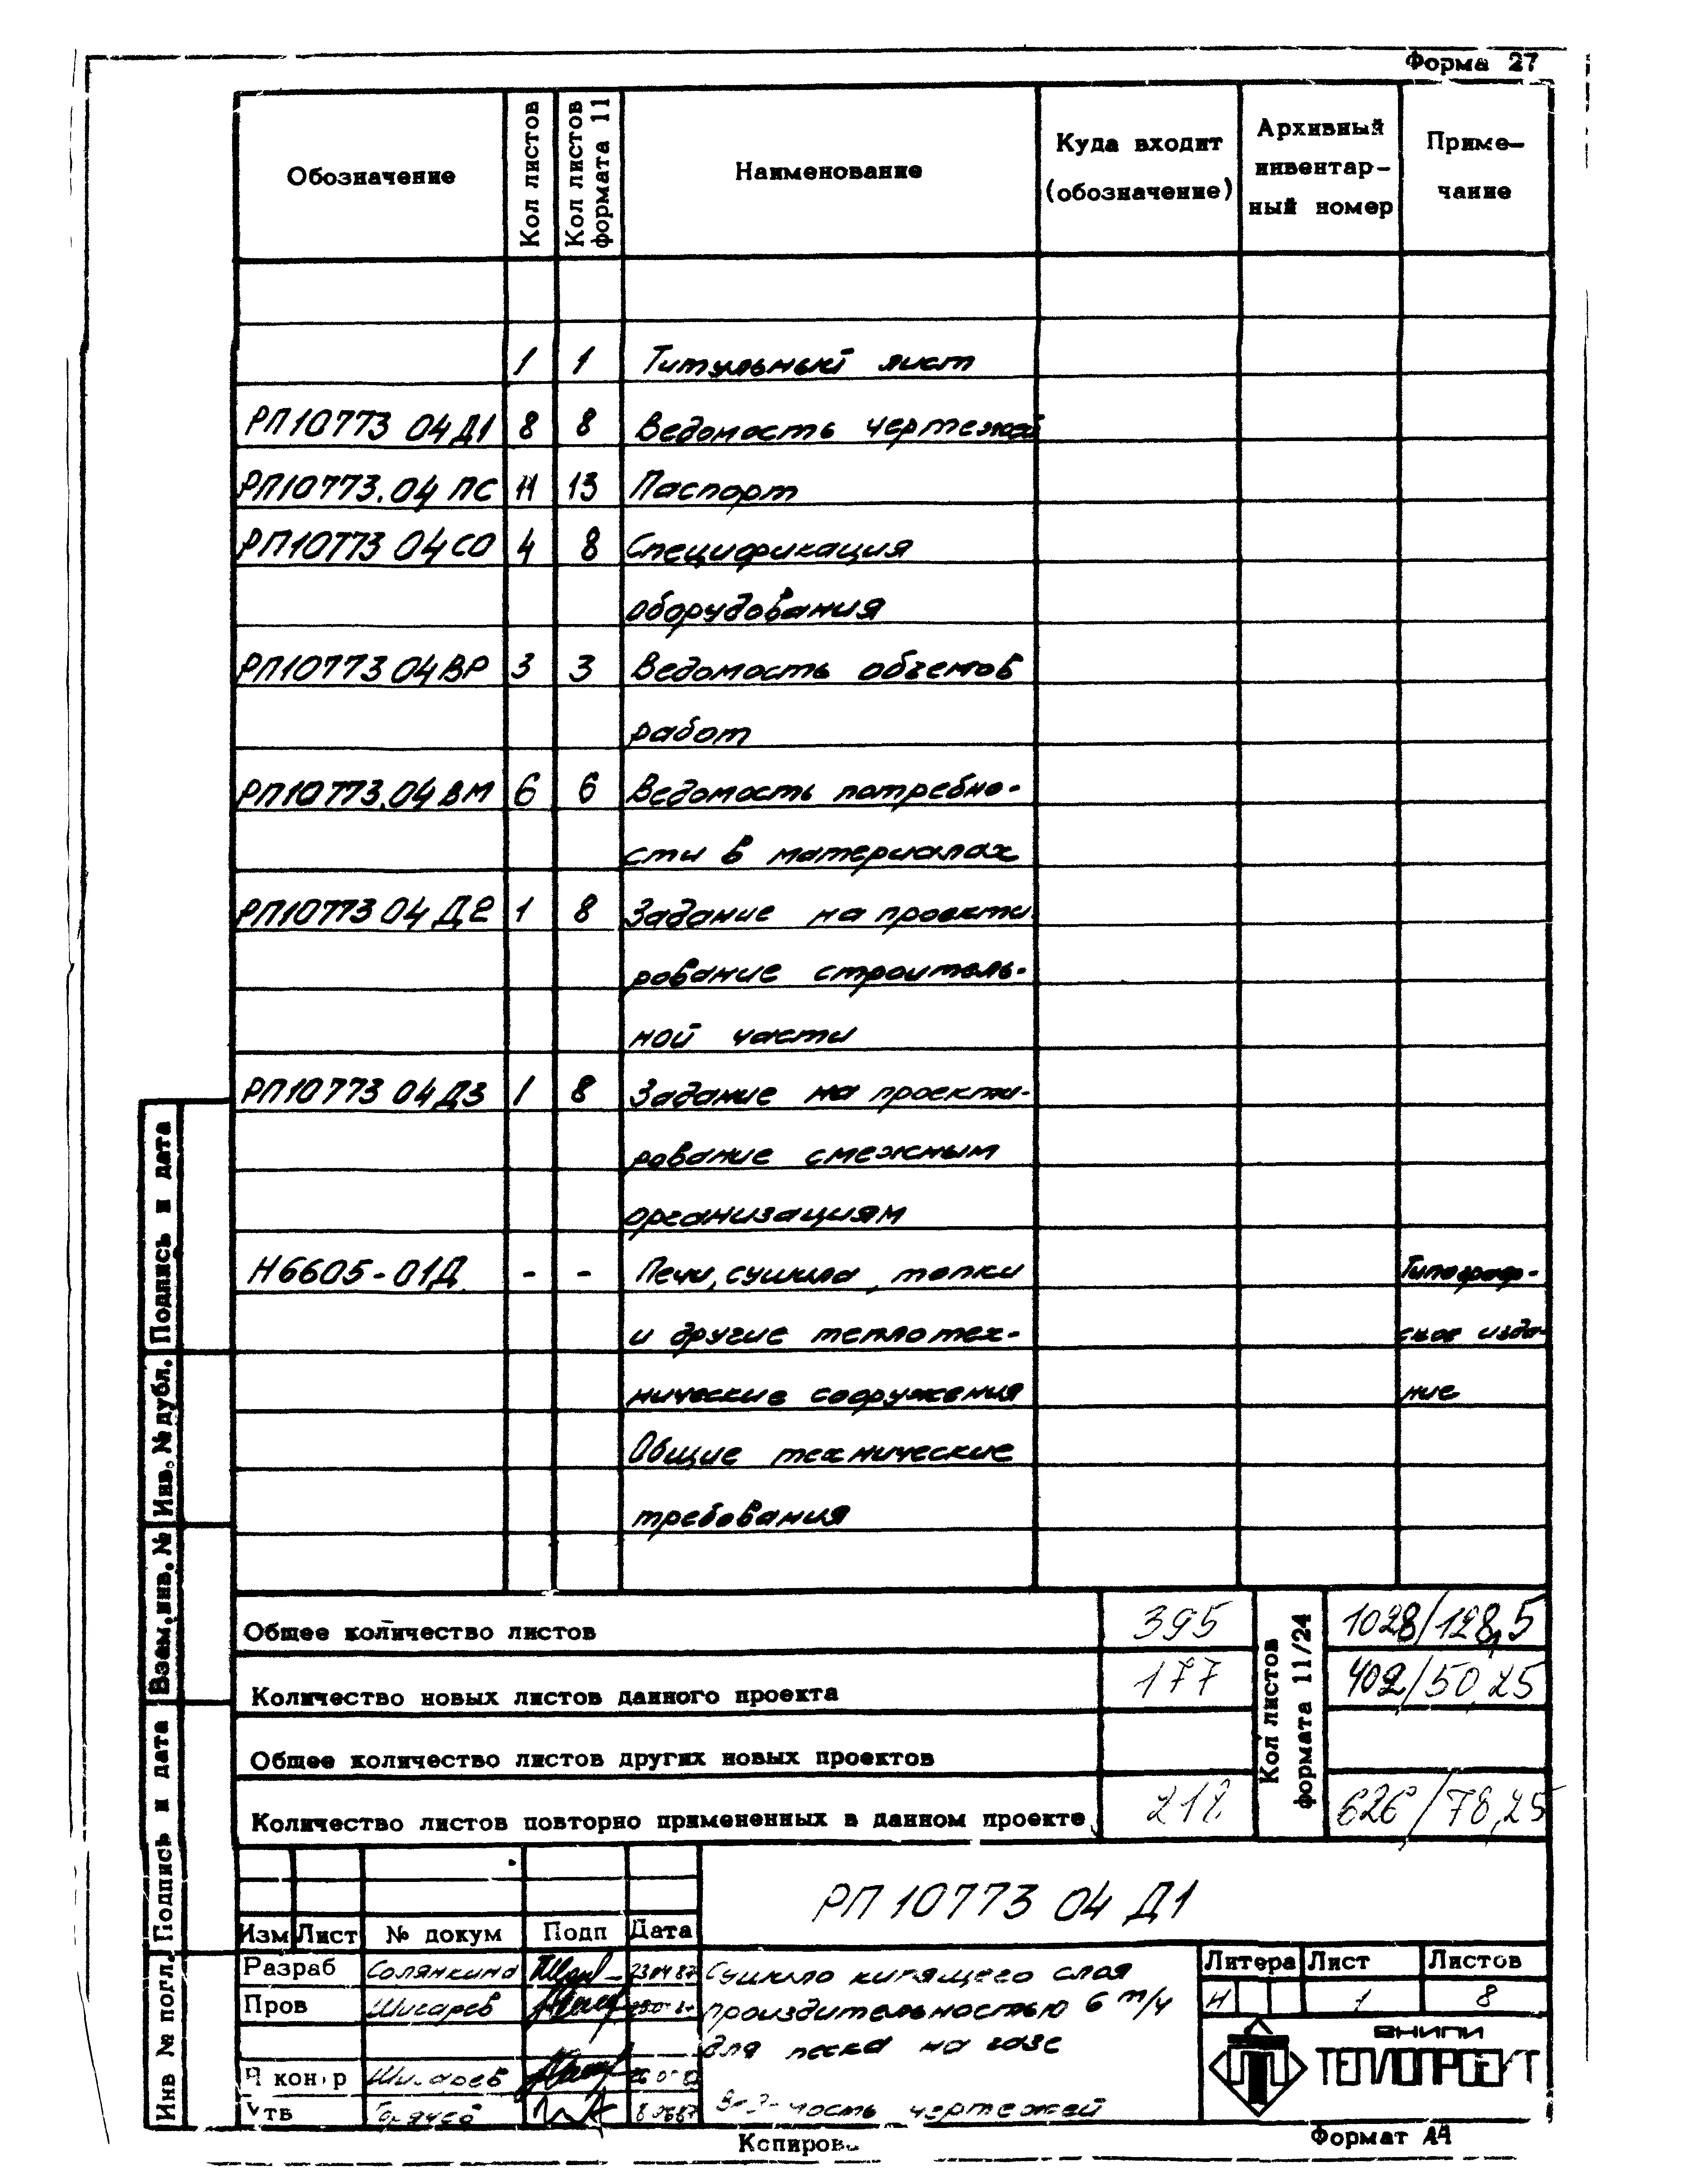 Форма 27
Обозначение
Кол листов
Кол листов формата 11
Наименование
Куда входит (обозначение)
Архивный инвентар- ный номер
Приме- чание
1 1 Титульный лист
РП10773 04Д1 8 8 Ведомость чертежей
РП10773.04 ПС 11 13 Паспорт
РП10773 04СО 4 8 Спецификация
оборудования
РП10773 04ВР 3 3 Ведомость объемов
работ
РП10773.04ВМ 6 6 Ведомость потребно-
сти в материалах
РП10773 04 Д2 1 8 Задание на проекти-
рование строитель-
ной части
РП10773 04 Д3 1 8 Задание на проекти-
рование смежным
организациям
Н6605-01Д - - Печи, сушила, топки Типограф-
и другие теплотех- ское изда-
нические сооружения ние
Общие технические
требования
Общее количество листов 395 1028/128,5
Количество новых листов данного проекта 177 402/50,25
Общее количество листов других новых проектов
Количество листов повторно примененных в данном проекте 218 626/78,25
Кол листов формата 11/24
РП 10773 04 Д1
Изм Лист № докум Подп Дата
Разраб Солянкина 23.04.87
Пров Шисарев
Н контр Шисарев
Утв
Сушило кипящего слоя
производительностью 6 т/ч
для песка на газе
Ведомость чертежей
Литера Лист Листов
И 1 8
ВНИПИ
ТЕПЛОПРОЕКТ
Копировал
Формат А4
Подпись и дата
Инв. № дубл.
Взам.инв. №
Подпись и дата
Инв № подл.